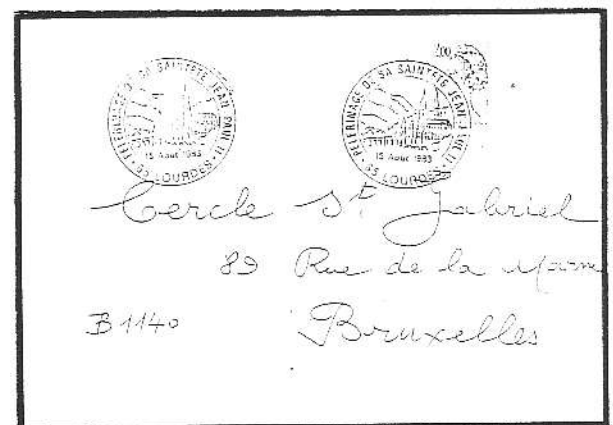 PELERINAGE DE SA SAINTETE JEAN PAUL II
15 Août 1983
65 LOURDES
PELERINAGE DE SA SAINTETE JEAN PAUL II
15 Août 1983
65 LOURDES
Cercle St. Gabriel
89 Rue de la
B1140 Bruxelles